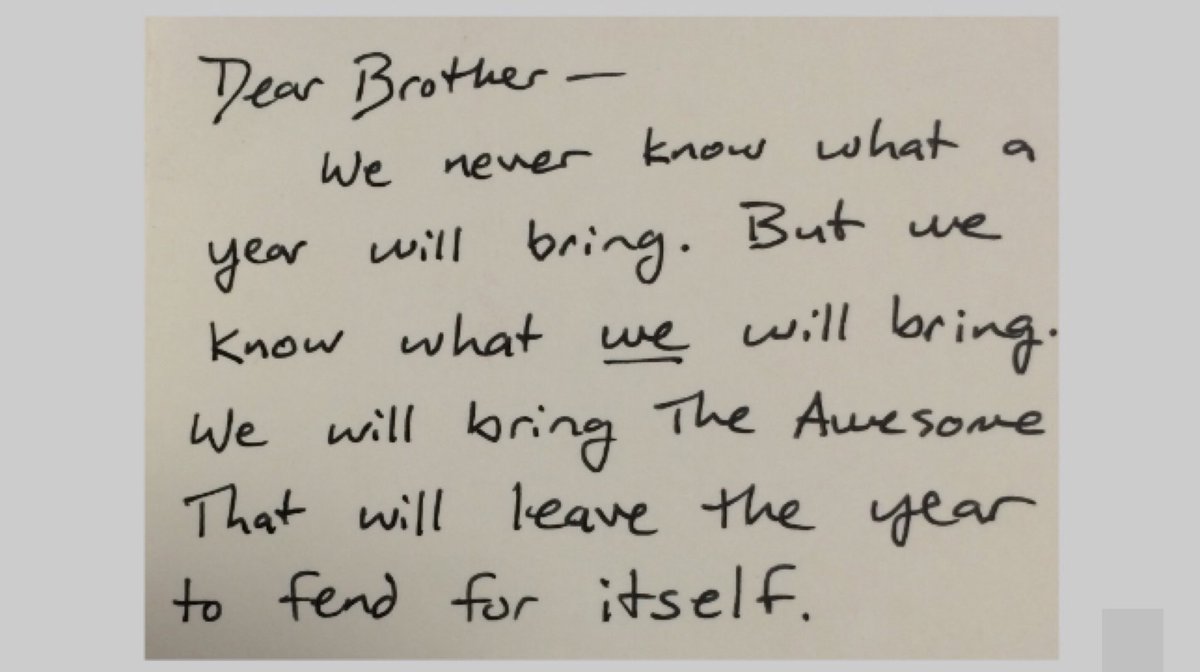 Dear Brother —
We never know what a
year will bring. But we
know what we will bring.
We will bring The Awesome
That will leave the year
to fend for itself.